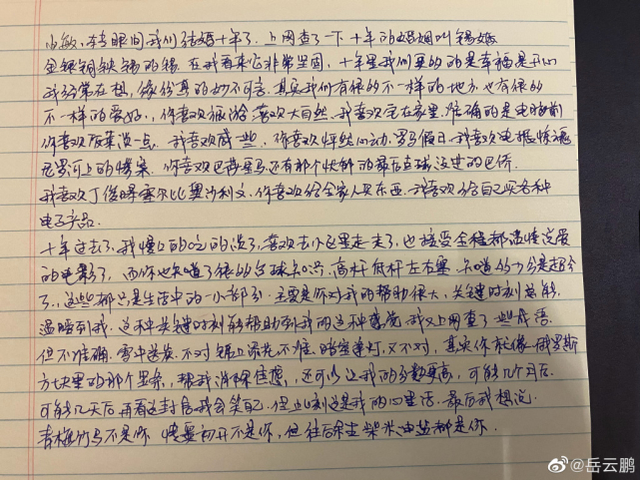 小敏，转眼间我们结婚十年了，上网查了一下十年的婚姻叫锡婚
金银铜铁锡的锡，在我看来它非常坚固，十年里我们更多的是幸福是开心
我经常在想，缘份真的妙不可言，其实我们有很多不一样的地方，也有很多
不一样的爱好，你喜欢旅游喜欢大自然，我喜欢宅在家里，准确的是电脑前
你喜欢饭菜淡一点，我喜欢咸一些，你喜欢怦然心动，罗马假日，我喜欢电锯惊魂
尼罗河上的惨案，你喜欢巴蒂罗马还有那个快解的最后点球没进的巴乔
我喜欢丁俊晖塞尔比奥沙利文，你喜欢给全家人买东西，我喜欢给自己买各种
电子产品。
十年过去了，我慢慢的吃的淡了，喜欢去小区里走走了，也接受全程都温情浪漫
的电影了，而你也知道了很多台球知识，高杆低杆左右塞，知道147分是超分
了，这些都只是生活中的一小部分，主要是你对我的帮助很大，关键时刻总能
温暖到我，这种关键时刻能帮助到我的这种感觉，我又上网查了一些成语
但不准确，雪中送炭，不对，锦上添花，不准，暗室逢灯，又不对，其实你就像俄罗斯
方块里的那个竖条，帮我消除焦虑，还可以让我的分数更高，可能几个月后
可能几天后再看这封信我会笑自己，但此刻这是我的心里话，最后我想说
青梅竹马不是你，情窦初开不是你，但往后余生柴米油盐都是你。
@岳云鹏